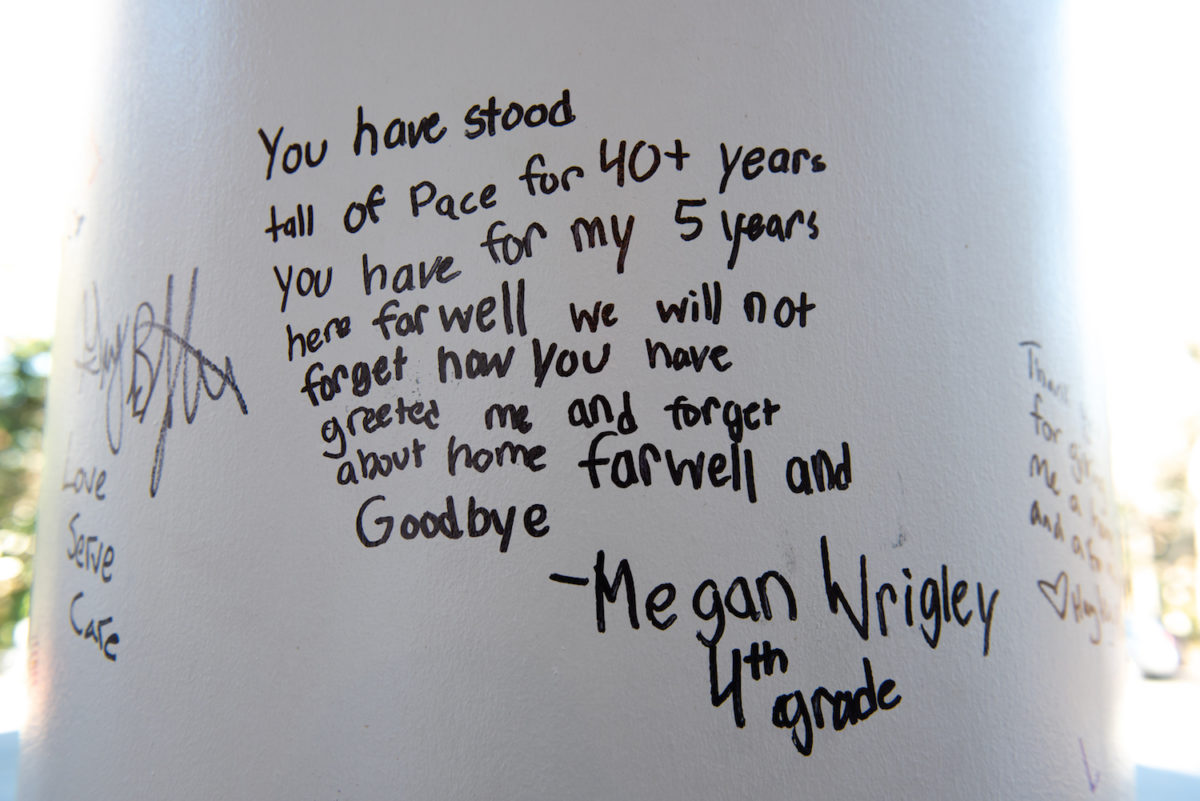 You have stood
tall of Pace for 40+ years
you have for my 5 years
here farwell we will not
forget how you have
greeted me and forget
about home farwell and
Goodbye
-Megan Wrigley
4th grade
Love
Serve
Care
for
me a
and a